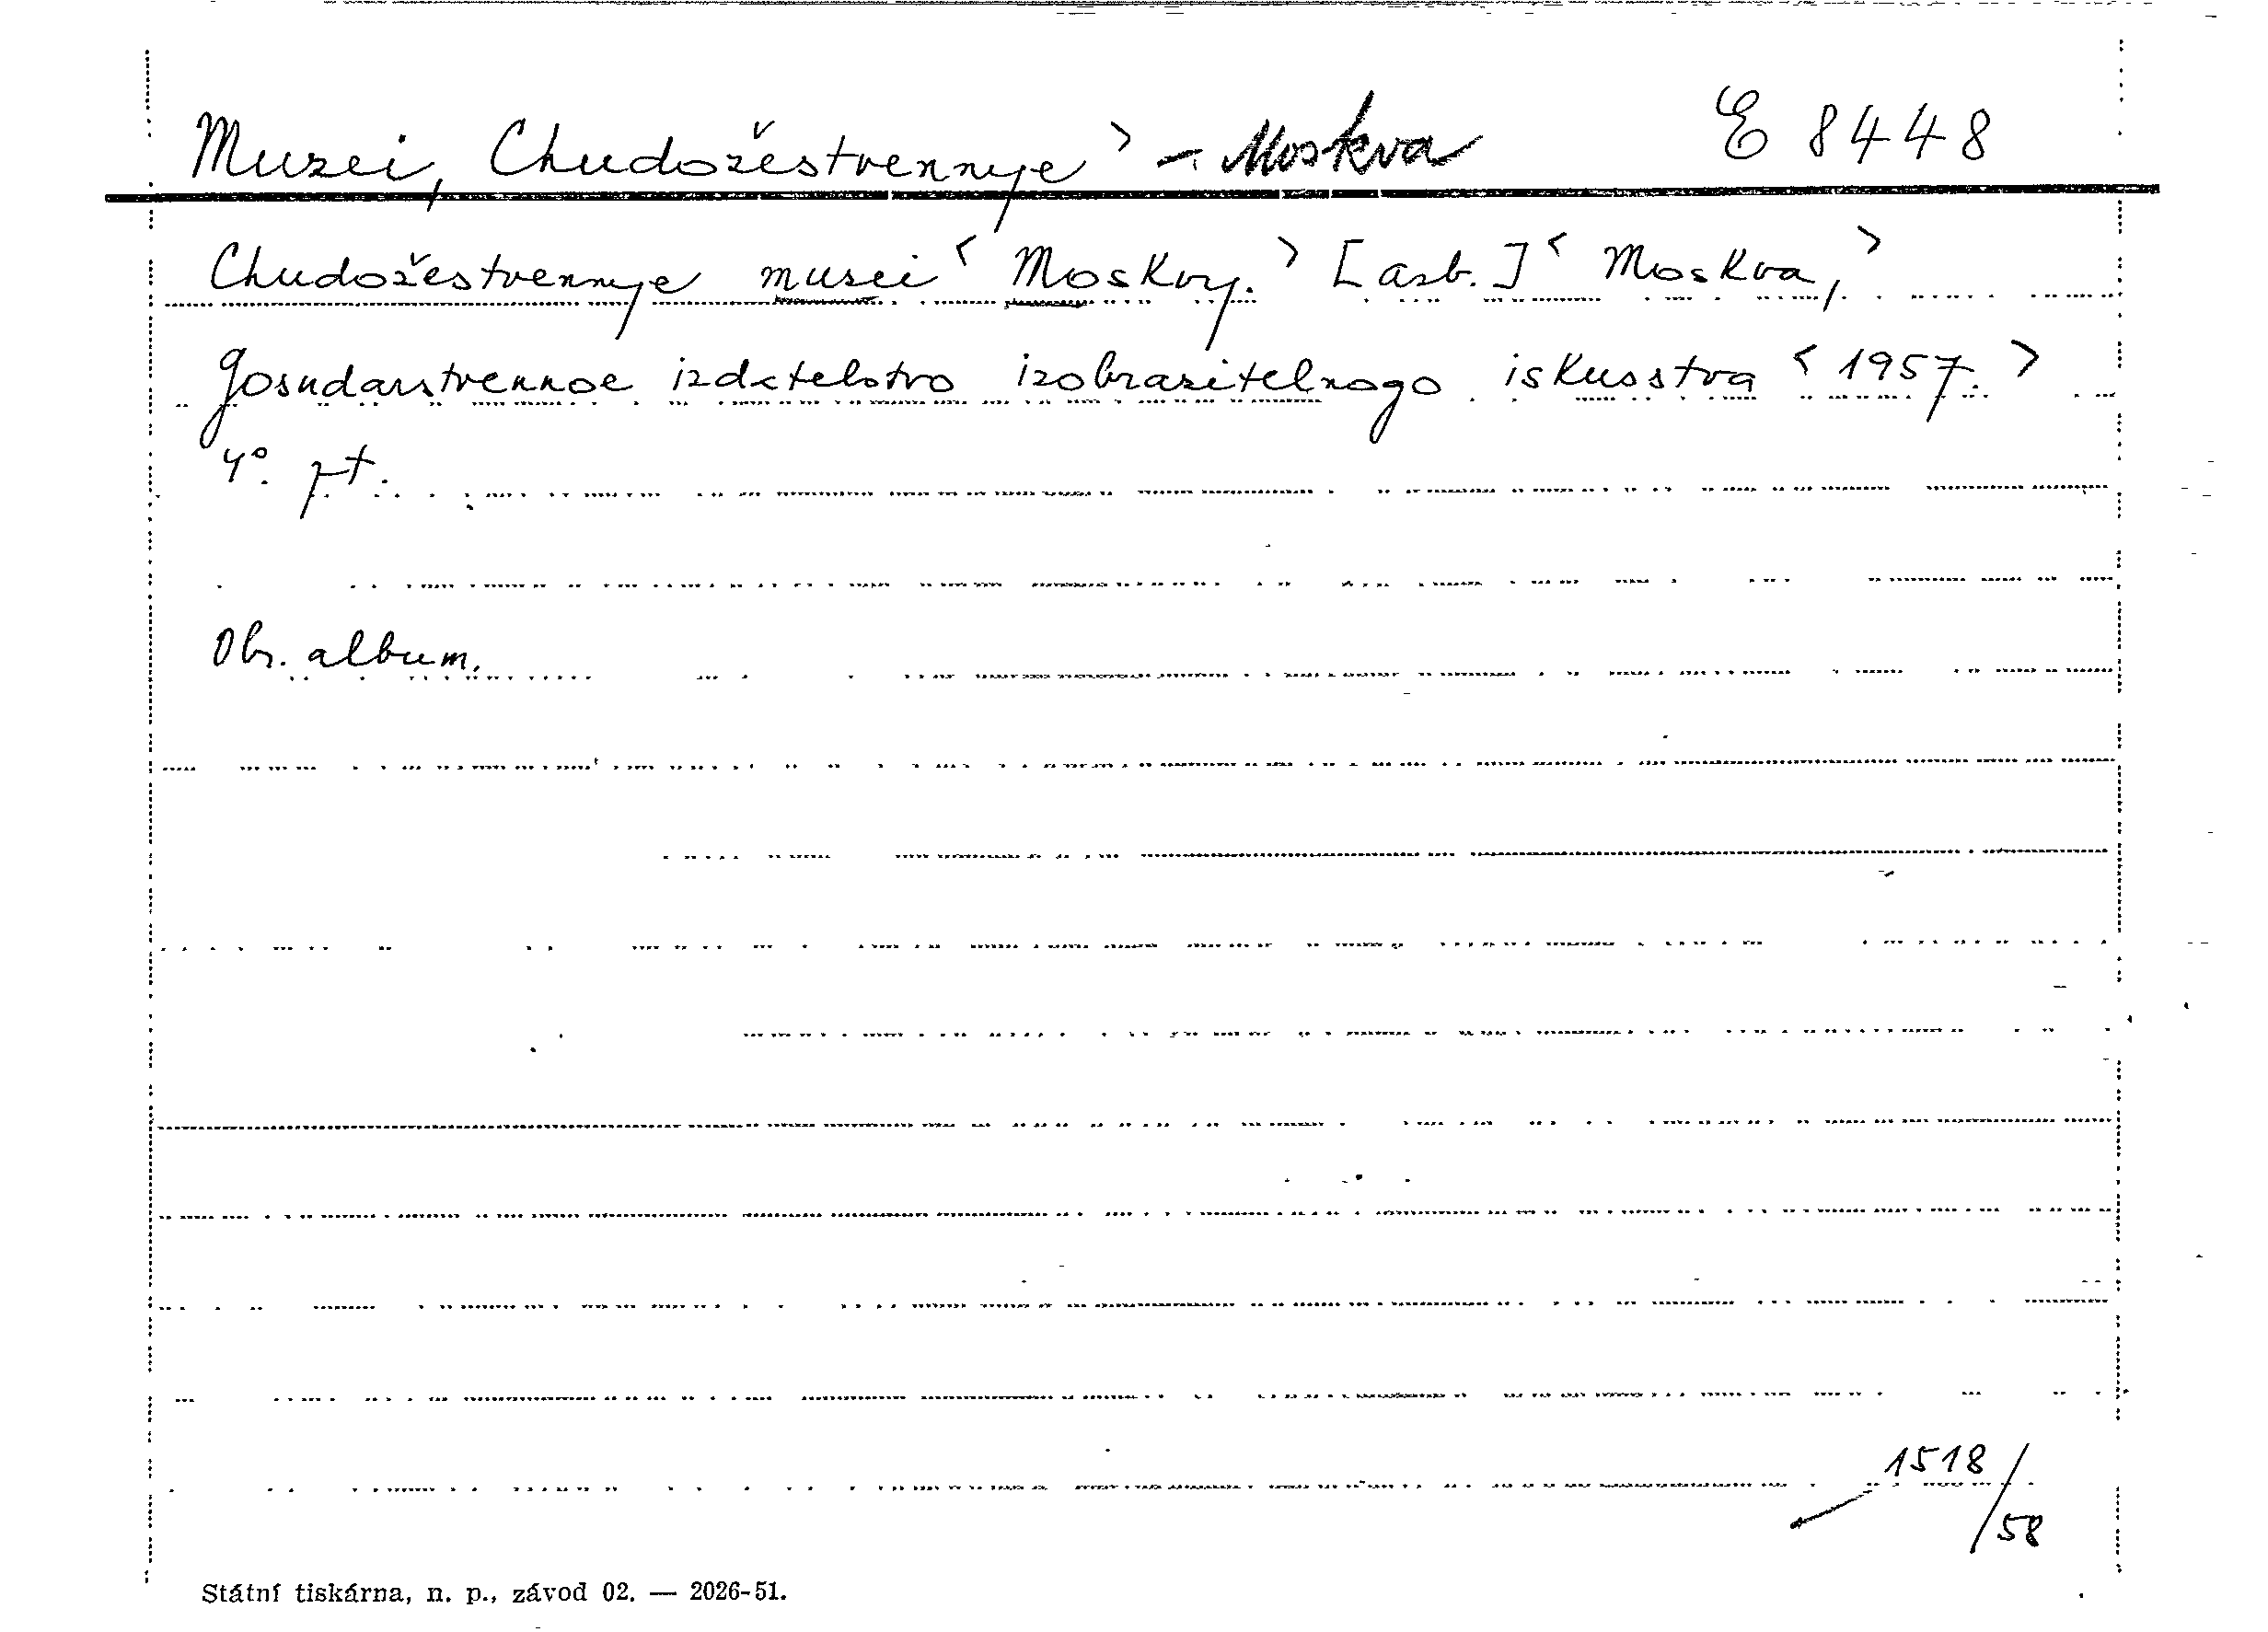 Musei, Chudožestvennye > - Moskva E 8448
Chudožestvennye musei < Moskvy. > [asb.] < Moskva, >
Gosudarstvennoe izdatelstvo izobrazitelnogo iskusstva < 1957. >
4°. pt.
Obr. album.
1518/
/58
Státní tiskárna, n. p., závod 02. — 2026-51.